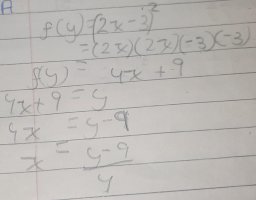 A
f(y) = (2x - 3)²
= (2x)(2x)(-3)(-3)
f(y) = 4x + 9
4x + 9 = y
4x = y - 9
x = y - 9
4